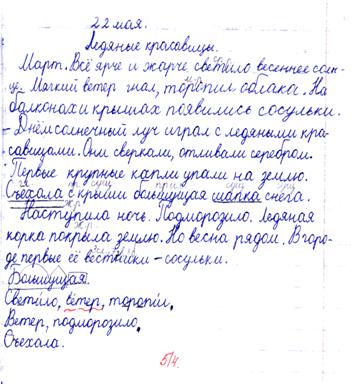 22 мая.
Ледяные красавицы.
Март. Всё ярче и жарче светило весеннее солн-
це. Мягкий ветер гнал, торопил облака. На
балконах и крышах появились сосульки.
Днём солнечный луч играл с ледяными кра-
савицами. Они сверкали, отливали серебром.
Первые крупные капли упали на землю.
Съехала с крыши большущая шапка снега.
Наступила ночь. Подморозило. Ледяная
корка покрыла землю. Но весна рядом. В горо-
де первые её вестники - сосульки.
Большущая.
Светило, ветер, торопил.
Ветер, подморозило.
Съехала.
5/4.